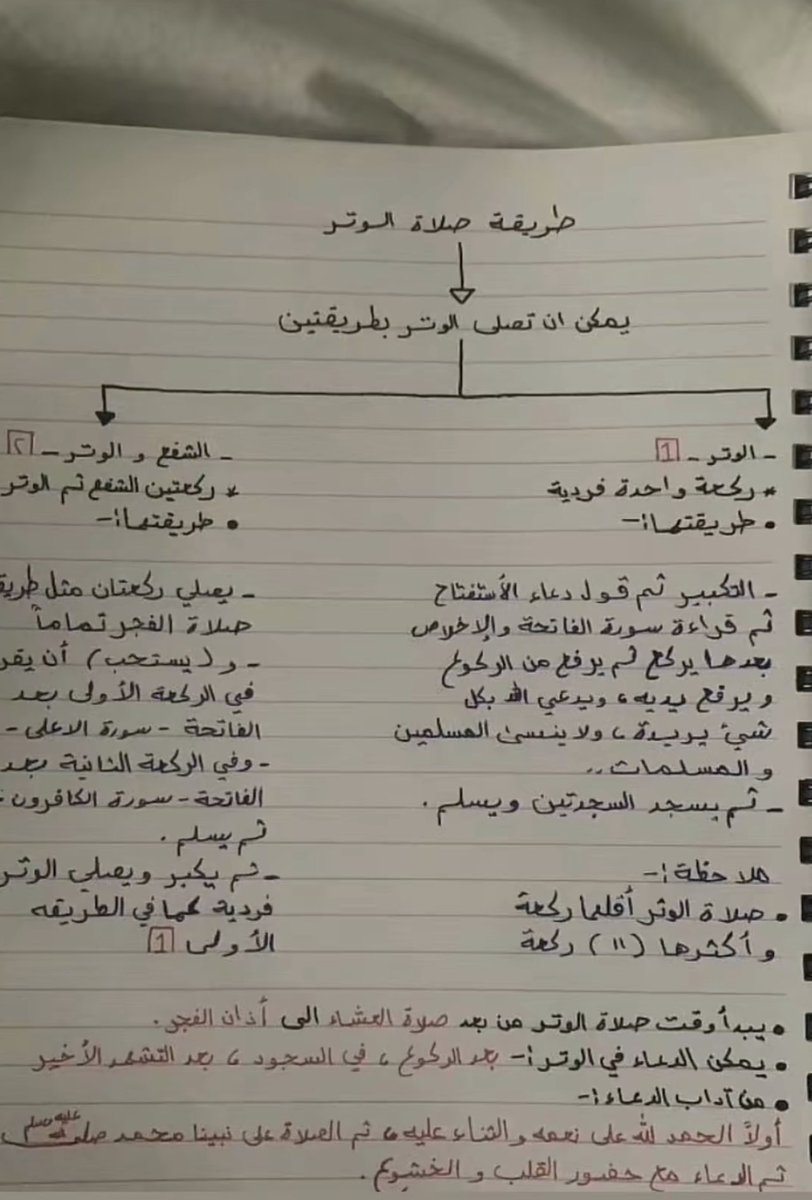 طريقة صلاة الوتر
يمكن ان تصلى الوتر بطريقتين
- الوتر - 1
* ركعة واحدة فردية
• طريقتها:-
- التكبير ثم قول دعاء الأستفتاح
ثم قراءة سورة الفاتحة والإخلاص
بعدها يركع ثم يرفع من الركوع
ويرفع يديه، ويدعي الله بكل
شيئ يريدة، ولا ينسى المسلمين
والمسلمات..
- ثم يسجد السجدتين ويسلم.
ملاحظة:-
• صلاة الوتر أقلها ركعة
وأكثرها (١١) ركعة
- الشفع و الوتر - ٢
* ركعتين الشفع ثم الوتر
• طريقتها:-
- يصلي ركعتان مثل
صلاة الفجر تماماً
- و(يستحب) أن
في الركعة الأولى بعد
الفاتحة - سورة الاعلى -
- وفي الركعة الثانية بعد
الفاتحة - سورة الكافرون -
ثم يسلم.
- ثم يكبر ويصلي الوتر
فردية كما في الطريقه
الأولى 1
• يبدأ وقت صلاة الوتر من بعد صلاة العشاء الى أذان الفجر.
• يمكن الدعاء في الوتر:- بعد الركوع، في السجود، بعد التشهد الأخير
• من آداب الدعاء:-
أولاً الحمد لله على نعمه والثناء عليه، ثم الصلاة على نبينا محمد صلى الله عليه وسلم
ثم الدعاء مع حضور القلب و الخشوع.